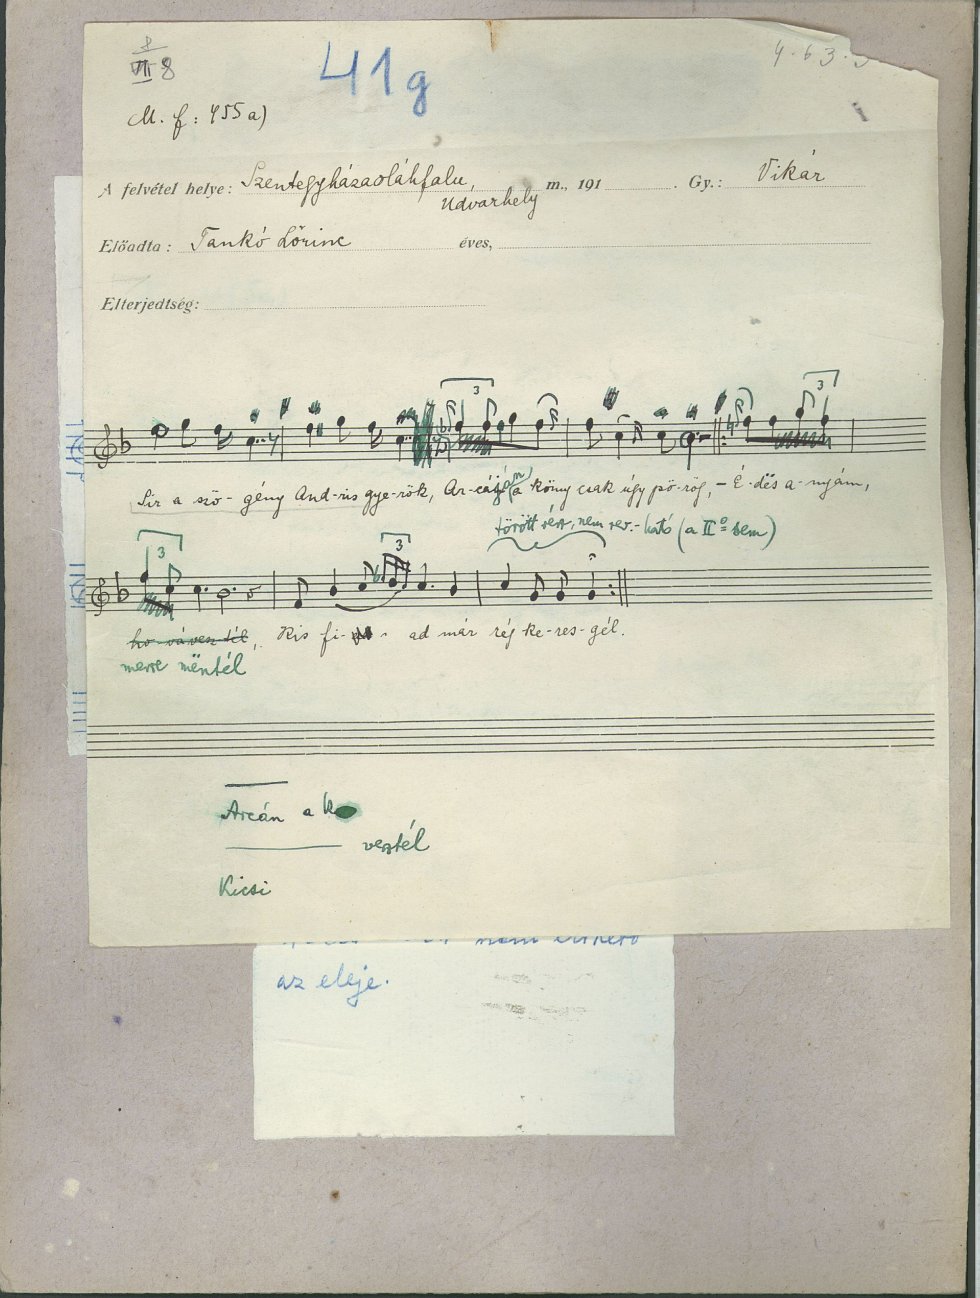 8
VII 8
41g
4.63.
M. f: 455 a)
A felvétel helye: Szentegyházasoláhfalu, Udvarhely m., 191 . Gy.: Vikár
Előadta: Tankó Lőrinc éves,
Elterjedtség:
3 3
Sir a szö-gény And-ris gye-rök, Ar-cán a köny csak úgy pö-rög, - É-dös a-nyám,
törött rész, nem rev.-ható (a IIº sem)
3 3
ho-vá vesz-tél, Kis fi- ad már rég ke-res-gél.
merre mëntél
Arcán a k
vesztél
Kicsi
nem érthető
az eleje.